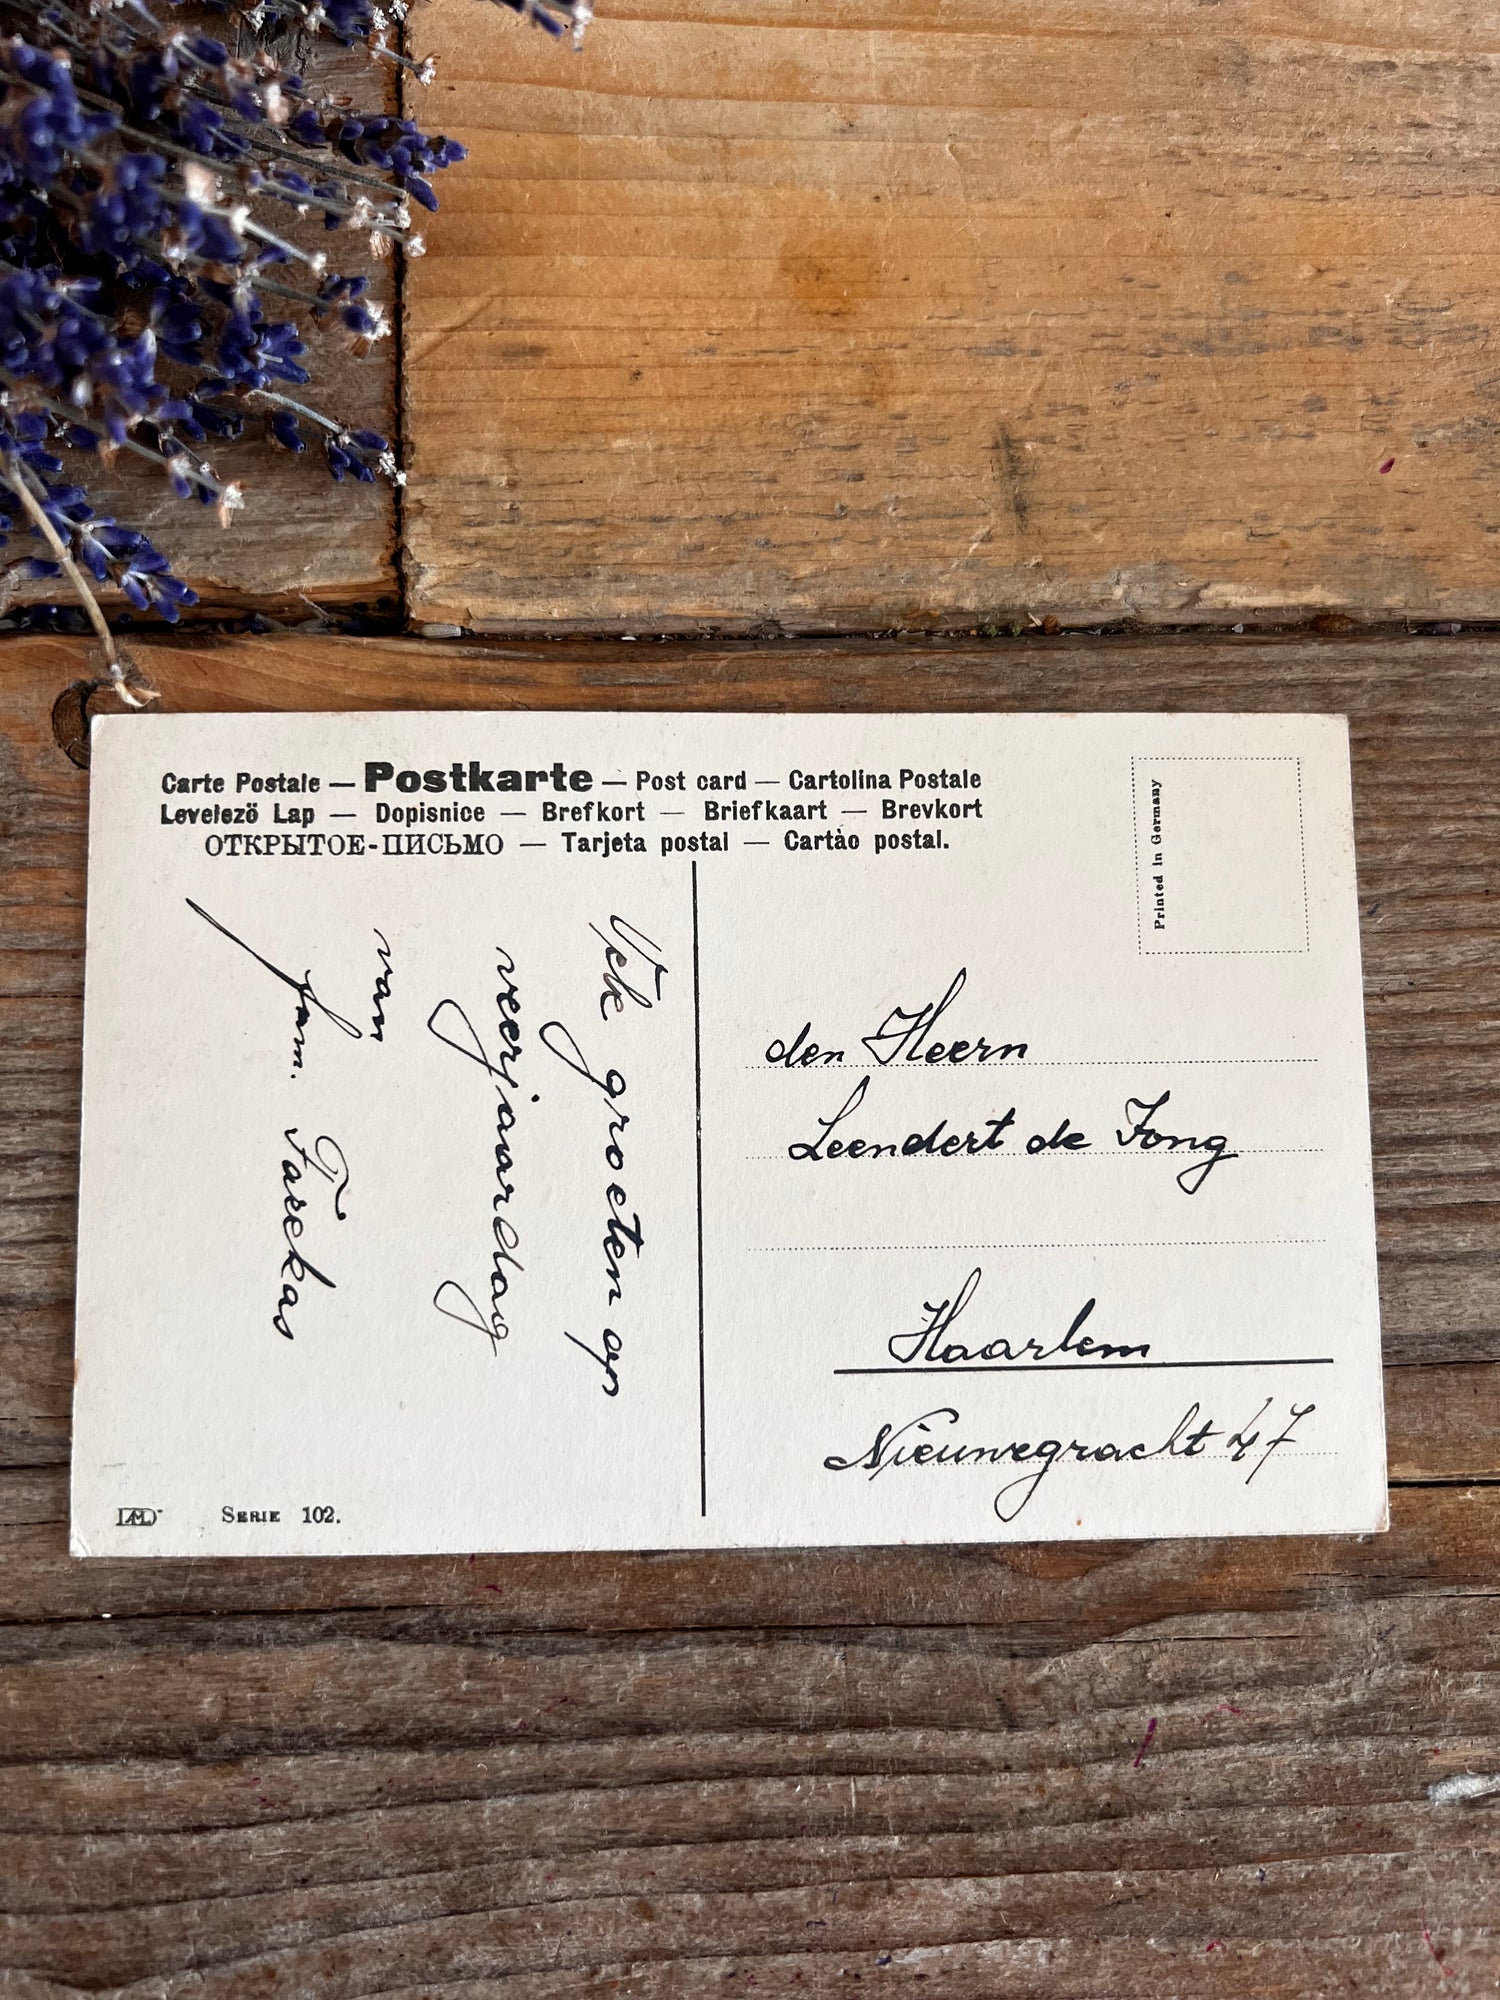 Carte Postale — Postkarte — Post card — Cartolina Postale
Levelező Lap — Dopisnice — Brefkort — Briefkaart — Brevkort
ОТКРЫТОЕ-ПИСЬМО — Tarjeta postal — Cartào postal.
Printed in Germany
Vele groeten op
veerjaardag
van
fam. Farekas
den Heern
Leendert de Jong
Haarlem
Nieuwegracht 47
SERIE 102.